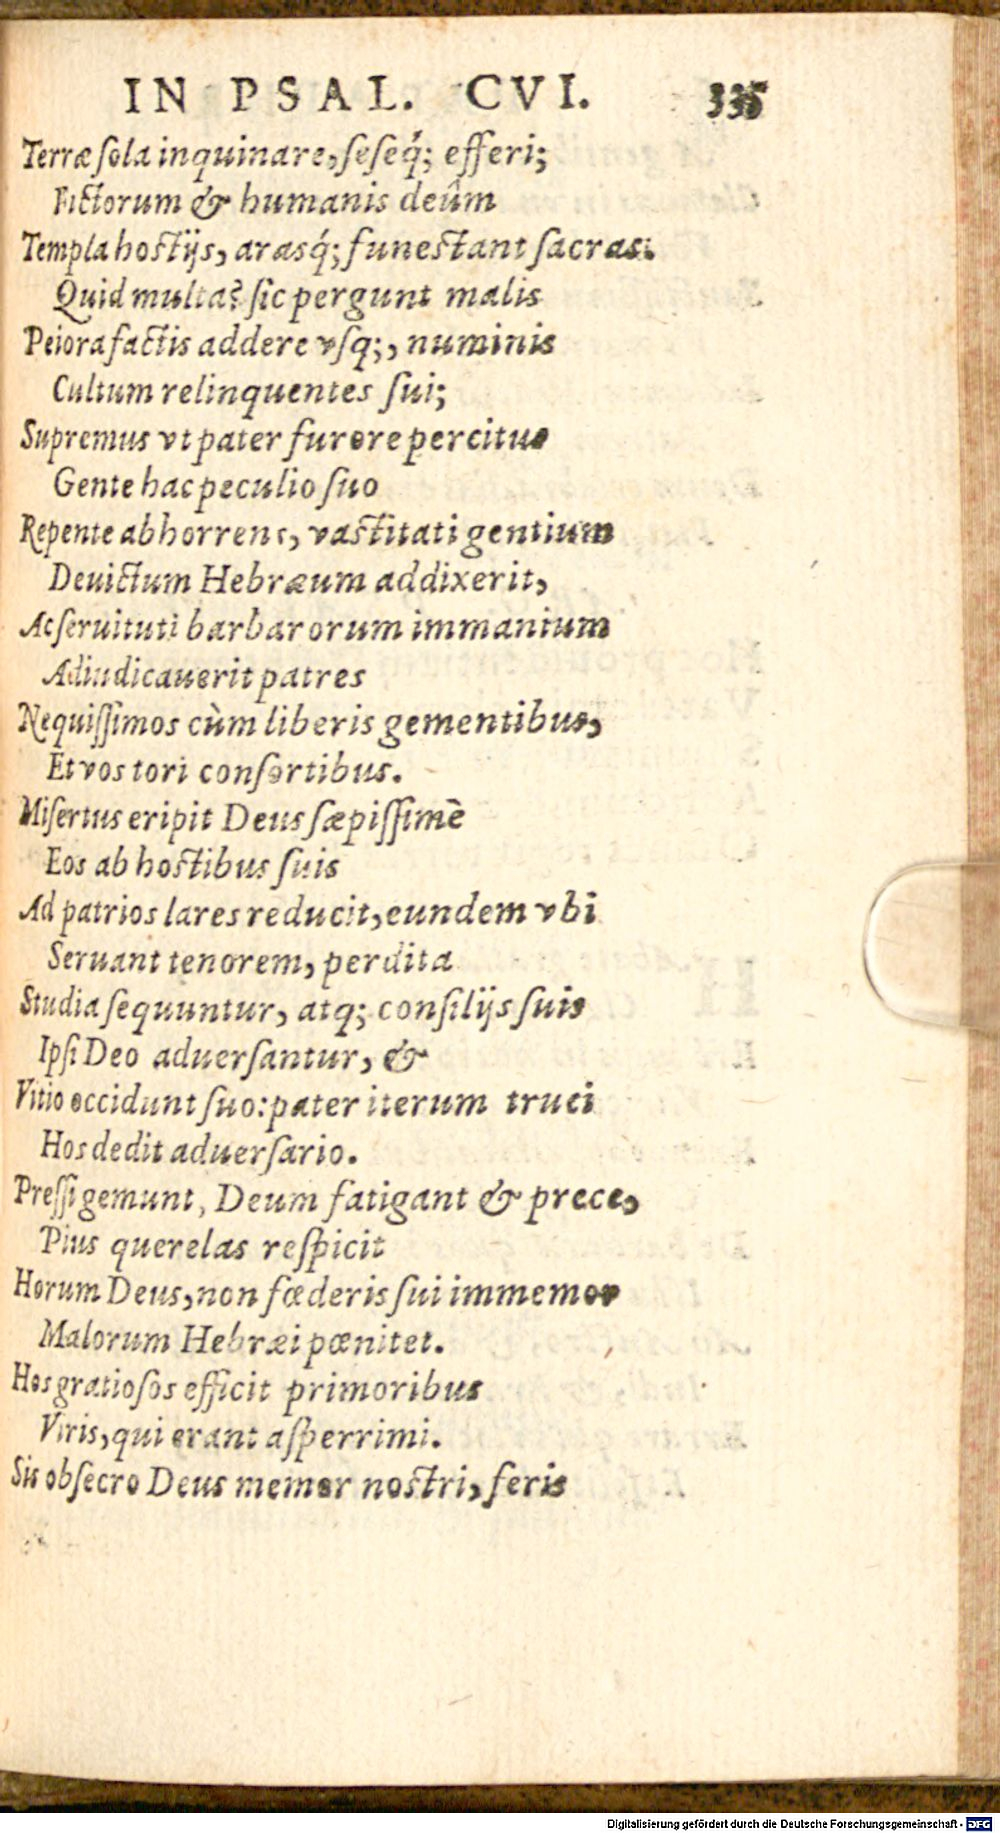 IN PSAL. CVI. 335
Terræ sola inquinare, seseq́; efferi;
Fictorum & humanis deûm
Templa hostijs, arasq́; funestant sacras:
Quid multa? sic pergunt malis
Peiora factis addere vsq;, numinis
Cultum relinquentes sui;
Supremus vt pater furore percitus
Gente hac peculio suo
Repente abhorrens, vastitati gentium
Deuictum Hebræum addixerit,
Ac seruituti barbarorum immanium
Adiudicauerit patres
Nequissimos cùm liberis gementibus,
Et vos tori consortibus.
Misertus eripit Deus sæpissimè
Eos ab hostibus suis
Ad patrios lares reducit, eundem vbi
Seruant tenorem, perdita
Studia sequuntur, atq; consilijs suis
Ipsi Deo aduersantur, &
Vitio occidunt suo: pater iterum truci
Hos dedit aduersario.
Pressi gemunt, Deum fatigant & prece,
Pius querelas respicit
Horum Deus, non fœderis sui immemor
Malorum Hebræi pœnitet.
Hos gratiosos efficit primoribus
Viris, qui erant asperrimi.
Sis obsecro Deus memor nostri, feris
Digitalisierung gefördert durch die Deutsche Forschungsgemeinschaft - DFG